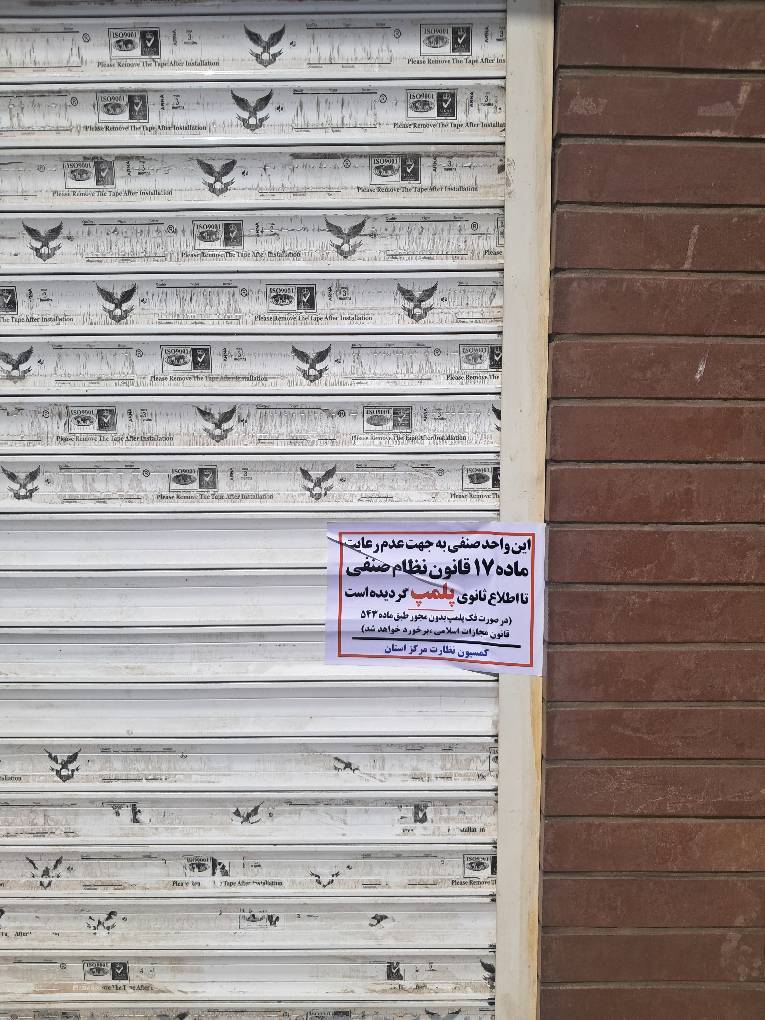 ISO9001 ARNA ISO9001
Please Remove The Tape After Installation
ISO9001 ARNA ISO9001
Please Remove The Tape After Installation
ISO9001 ISO9001
Please Remove The Tape After Installation Please Remove The Tape After Installation
ISO9001
Please Remove The Tape After Installation Please
ISO9001
The Tape After Installation Please Remove The Tape After Installation
ISO9001 ISO9001
Please Remove The Tape After Installation Please Remove The
ISO9001 ISO9001
Please Remove The Tape After Installation Please Remove The Tape After Installation
ISO9001 ISO9001
Please Remove The Tape After Installation Please Remove The
این واحد صنفی به جهت عدم رعایت
ماده ۱۷ قانون نظام صنفی
تا اطلاع ثانوی پلمپ گردیده است
(در صورت فک پلمپ بدون مجوز طبق ماده ۵۴۳
قانون مجازات اسلامی ،برخورد خواهد شد)
کمسیون نظارت مرکز استان
ISO9001 ISO9001
Tape After Installation Please Remove T
After
ISO9001